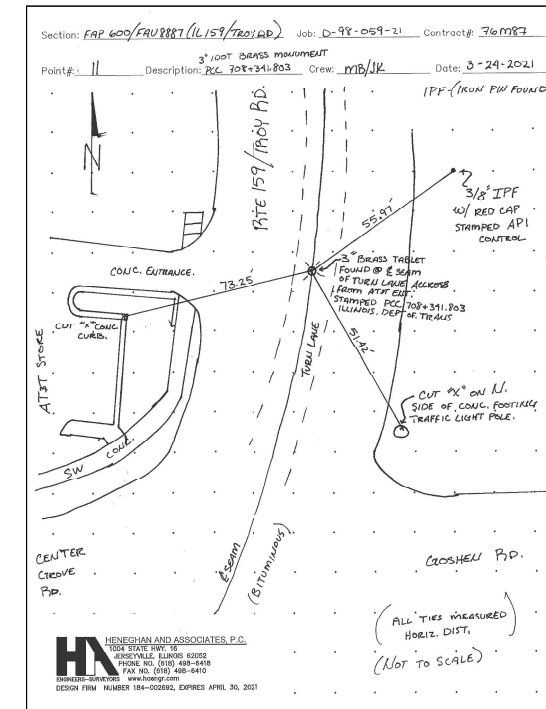 Section: FAP 600/FAU 8887 (IL 159/TROY RD) Job: D-98-059-21 Contract#: 76M87
3" IDOT BRASS MONUMENT
Point#: 11 Description: PCC 708+341.803 Crew: MB/JK Date: 3-24-2021
IPF-(IRON PIN FOUND
N
RTE 159/TROY RD.
55.97'
3/8" IPF
W/ RED CAP
STAMPED API
CONTROL
CONC. ENTRANCE.
73.25'
3" BRASS TABLET
FOUND @ ℄ SEAM
OF TURN LANE ACCROSS
FROM AT&T ENT.
STAMPED PCC 708+341.803
ILLINOIS. DEPT OF. TRANS
CUT "X" CONC
CURB.
AT&T STORE
TURN LANE
51.42'
CUT "X" ON N.
SIDE OF CONC. FOOTING
TRAFFIC LIGHT POLE.
CONC.
SW
℄ SEAM
(BITUMINOUS)
CENTER
GROVE
RD.
GOSHEN RD.
(ALL TIES MEASURED
HORIZ. DIST.)
(NOT TO SCALE)
HA
ENGINEERS-SURVEYORS
HENEGHAN AND ASSOCIATES, P.C.
1004 STATE HWY. 16
JERSEYVILLE, ILLINOIS 62052
PHONE NO. (618) 498-6418
FAX NO. (618) 498-6410
www.haengr.com
DESIGN FIRM NUMBER 184-002692, EXPIRES APRIL 30, 2021